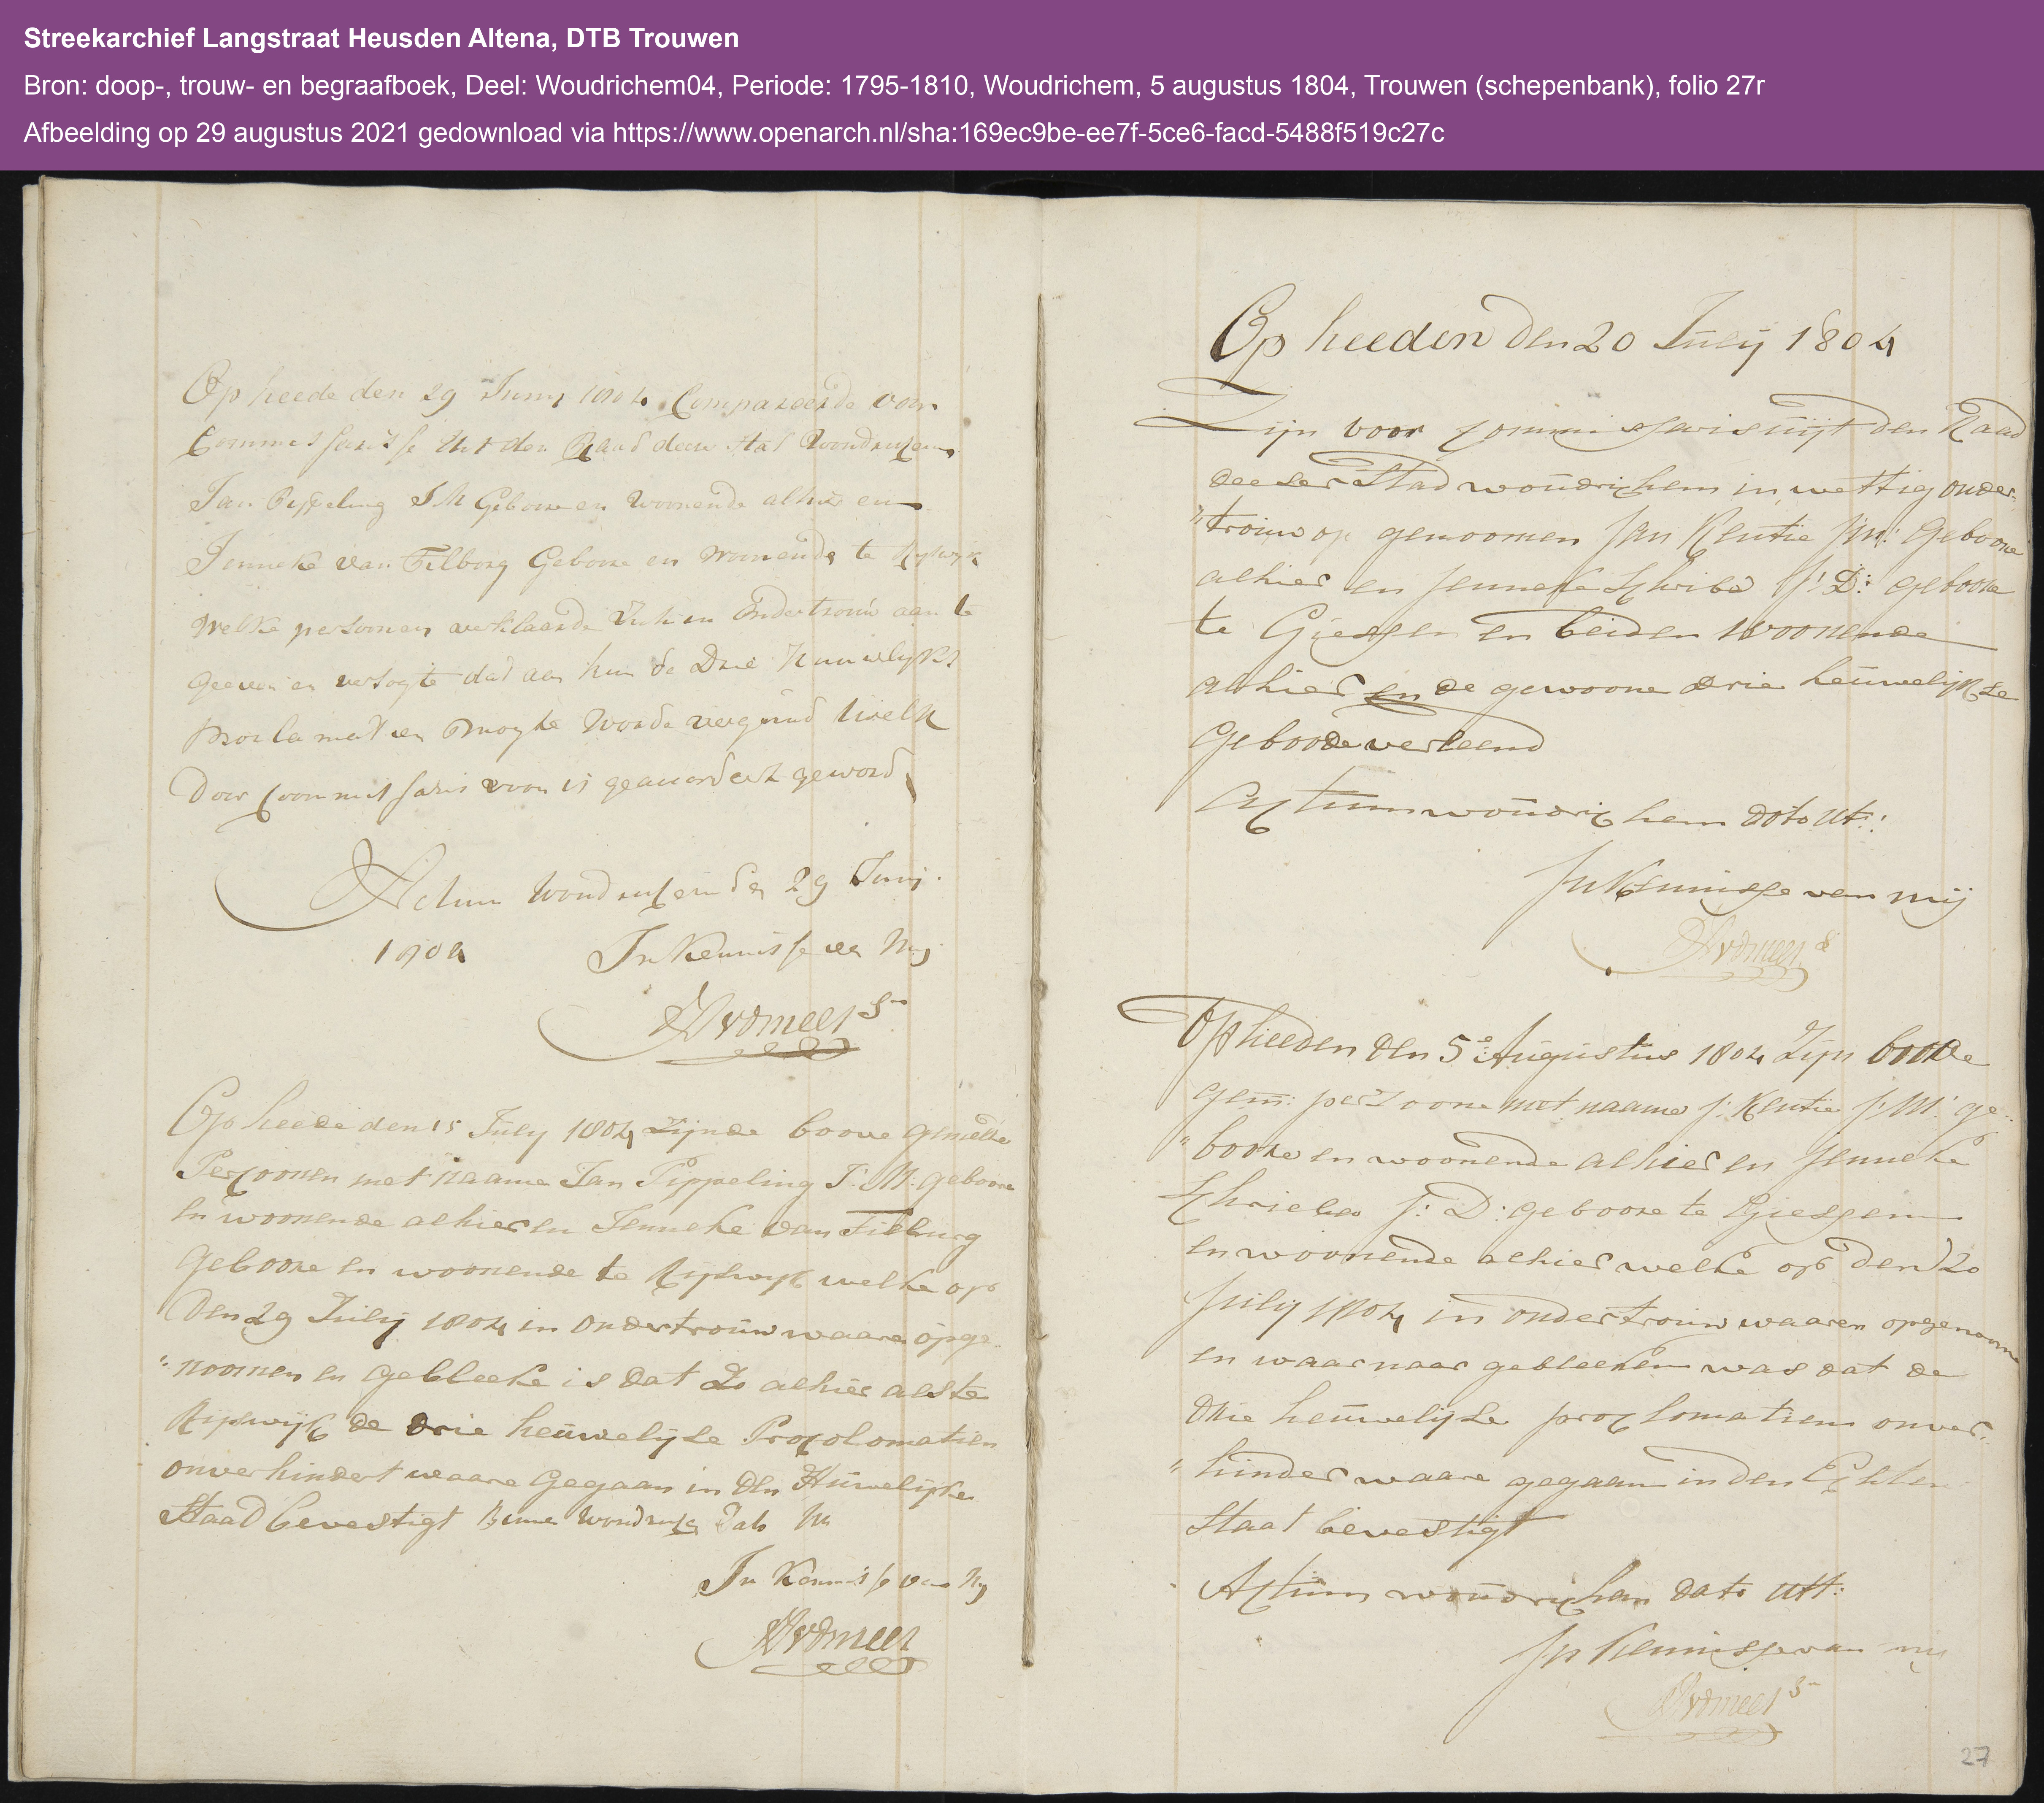 Streekarchief Langstraat Heusden Altena, DTB Trouwen
Bron: doop-, trouw- en begraafboek, Deel: Woudrichem04, Periode: 1795-1810, Woudrichem, 5 augustus 1804, Trouwen (schepenbank), folio 27r
Afbeelding op 29 augustus 2021 gedownload via https://www.openarch.nl/sha:169ec9be-ee7f-5ce6-facd-5488f519c27c
Op heede den 29 Junij 1804 Compareerde voor
Commissarisse uit den Raad deser stad Woudrichem
Jan Pippeling J M Geboore en Woonende alhier en
Jenneke van Tilborg Geboore en Woonende te Rijswijk
Welke persoonen verklaarde Zich in Ondertrouw aan te
geeven en versogte dat aan hun de Drie Huuwelijkse
Proclamatien mogte Worde vergund twelk
Door Commissaris voorn is geaccordeert geword
Actum Woudrichem den 29 Junij
1804 In Kennisse van Mij
AVDMeer Sn
Op heede den 15 Julij 1804 Zijnde boove gemelde
Perzoonen met naame Jan Pippeling J: M: geboore
en woonende alhier en Jenneke van Tilburg
Geboore en woonende te Rijswijk welke op
Den 29 Julij 1804 in Ondertrouw waare opge
"noomen en gebleeke is dat Zo alhier als te
Rijswijk de drie heuwelijse Proclomatien
onverhindert waare Gegaan in den Huwelijke
Staad bevestigt Binne Woudrichem
In Kennisse van Mij
AVDMeer
Op heeden den 20 Julij 1804
Zijn voor Commissaris uijt den Raad
deeser Stad woudrichem in wettig onder-
"trouw op genoomen Jan Kentie J:M: Geboore
alhier en Jenneke Schribe J: D: geboore
te Giessen en beiden woonende
alhier en de gewoone drie heuwelijkse
Geboode verleend
Actum woudrichem dato Ut::
In Kennisse van mij
AVDMeer S
Op heeden den 5e Augustus 1804 Zijn boove
gem: perzoone met naame J: Kentie J: M: ge-
"boore en woonende alhier en Jenneke
Schrieber J: D: geboore te Giessen
en woonende alhier welke op den 20
Julij 1804 in ondertrouw waaren opgenoome
en waar naar gebleeken was dat de
drie heuwelijse proclomatien onver-
"hinder waare gegaan in den Echten
Staat bevestigt
Actum woudrichem dato Utt:
In Kennisse van mij
AVDMeer Sn
27